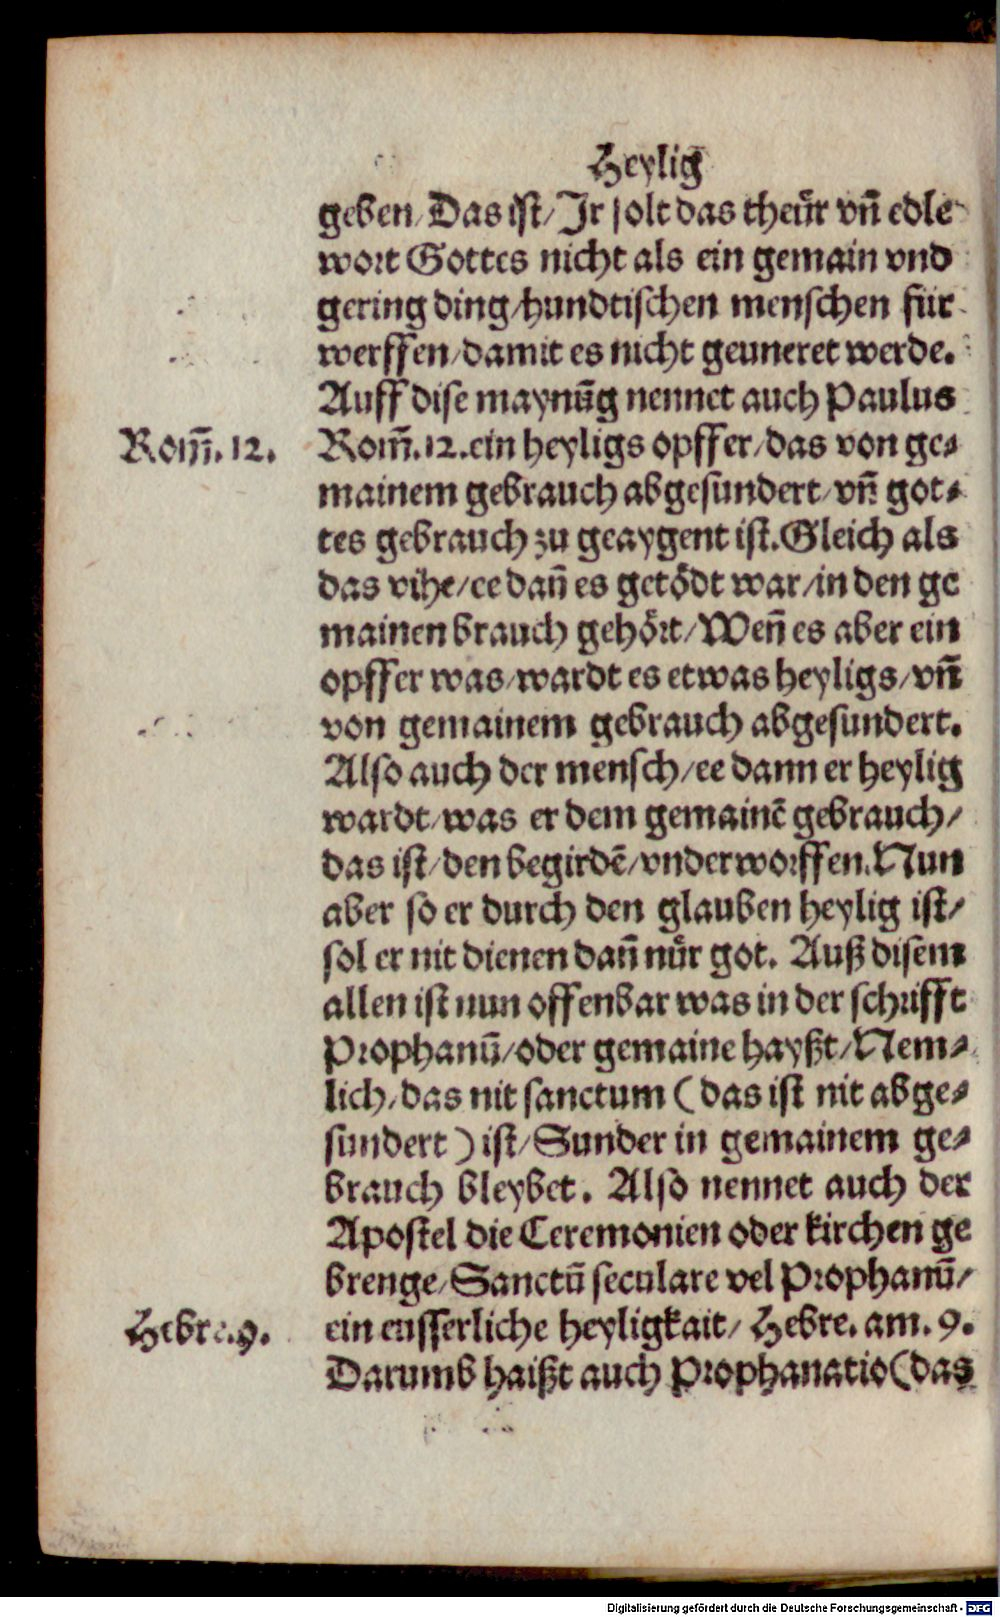 Heylig
geben/Das ist/Ir solt das theür vñ edle
wort Gottes nicht als ein gemain vnd
gering ding/hundtischen menschen für
werffen/damit es nicht geuneret werde.
Auff dise maynũg nennet auch Paulus
Rom̃. 12.
Rom̃.12.ein heyligs opffer/das von ge⸗
mainem gebrauch abgesundert/vñ got⸗
tes gebrauch zu geaygent ist.Gleich als
das vihe/ee dañ es getödt war/in den ge
mainen brauch gehört/Weñ es aber ein
opffer was/wardt es etwas heyligs/vñ
von gemainem gebrauch abgesundert.
Also auch der mensch/ee dann er heylig
wardt/was er dem gemainẽ gebrauch/
das ist/den begirdẽ/vnderworffen.Nun
aber so er durch den glauben heylig ist/
sol er nit dienen dañ nür got. Auß disem
allen ist nun offenbar was in der schrifft
Prophanũ/oder gemaine hayßt/Nem⸗
lich/das nit sanctum (das ist nit abge⸗
sundert) ist/Sunder in gemainem ge⸗
brauch bleybet. Also nennet auch der
Apostel die Ceremonien oder kirchen ge
brenge/Sanctũ seculare vel Prophanũ/
Hebre.9.
ein eusserliche heyligkait/ Hebre. am. 9.
Darumb haißt auch Prophanatio(das
Digitalisierung gefördert durch die Deutsche Forschungsgemeinschaft - DFG